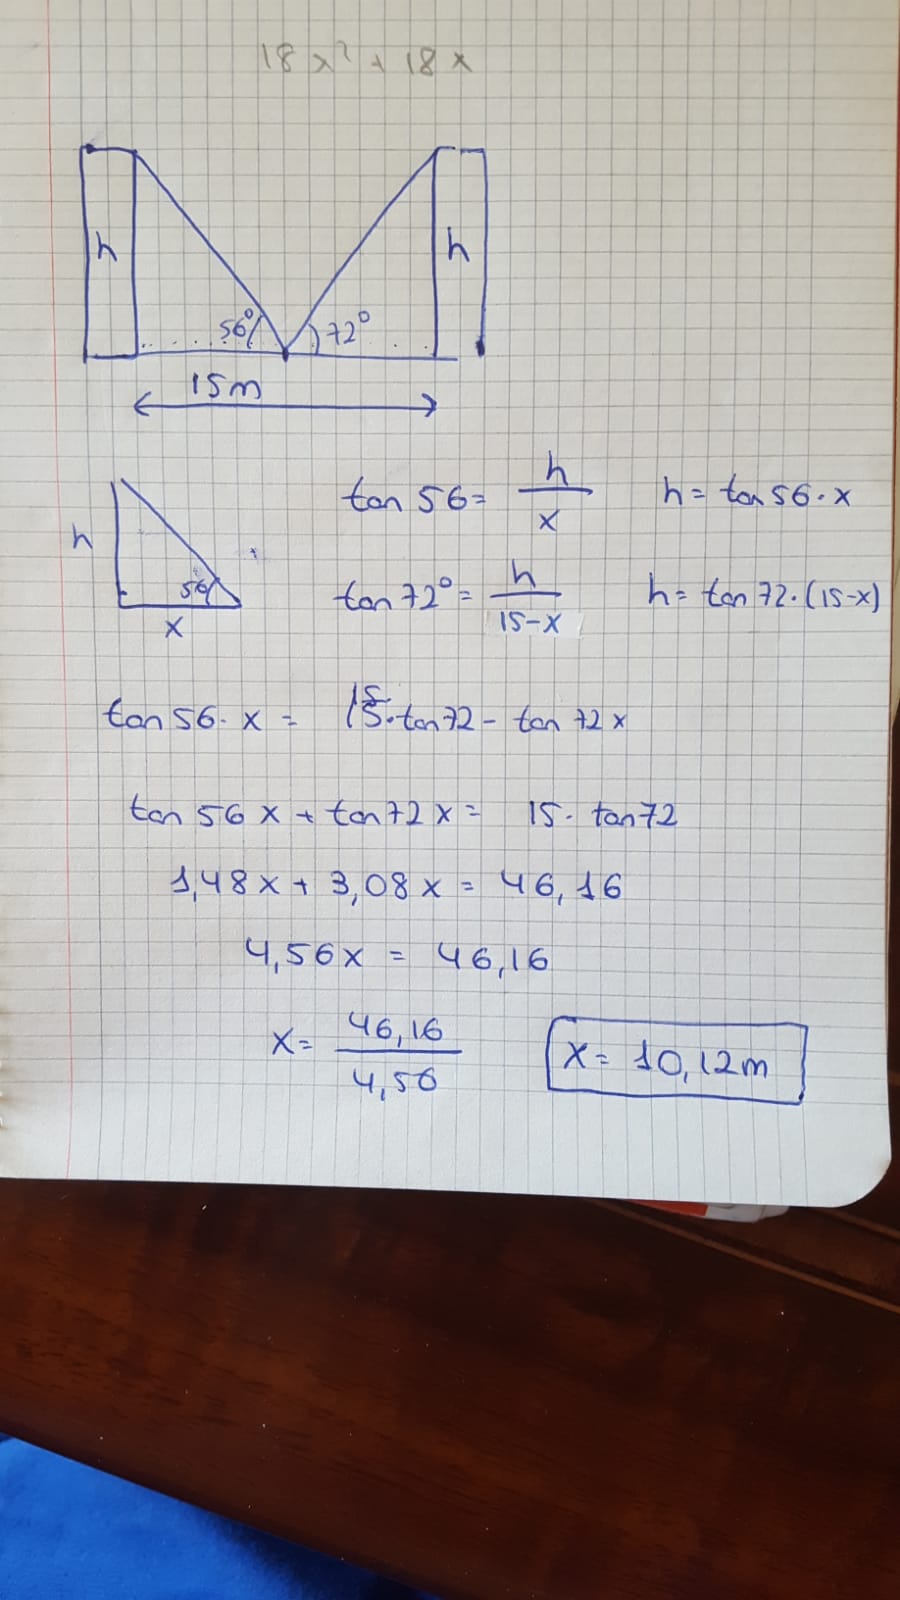 18x² + 18x
h
h
56°
72°
15m
h
56
x
tan 56 = h/x
h = tan 56 · x
tan 72° = h/15-x
h = tan 72 · (15-x)
tan 56 · x = 15 · tan 72 - tan 72 x
tan 56 x + tan 72 x = 15 · tan 72
1,48x + 3,08x = 46,16
4,56x = 46,16
x = 46,16/4,56
x = 10,12m